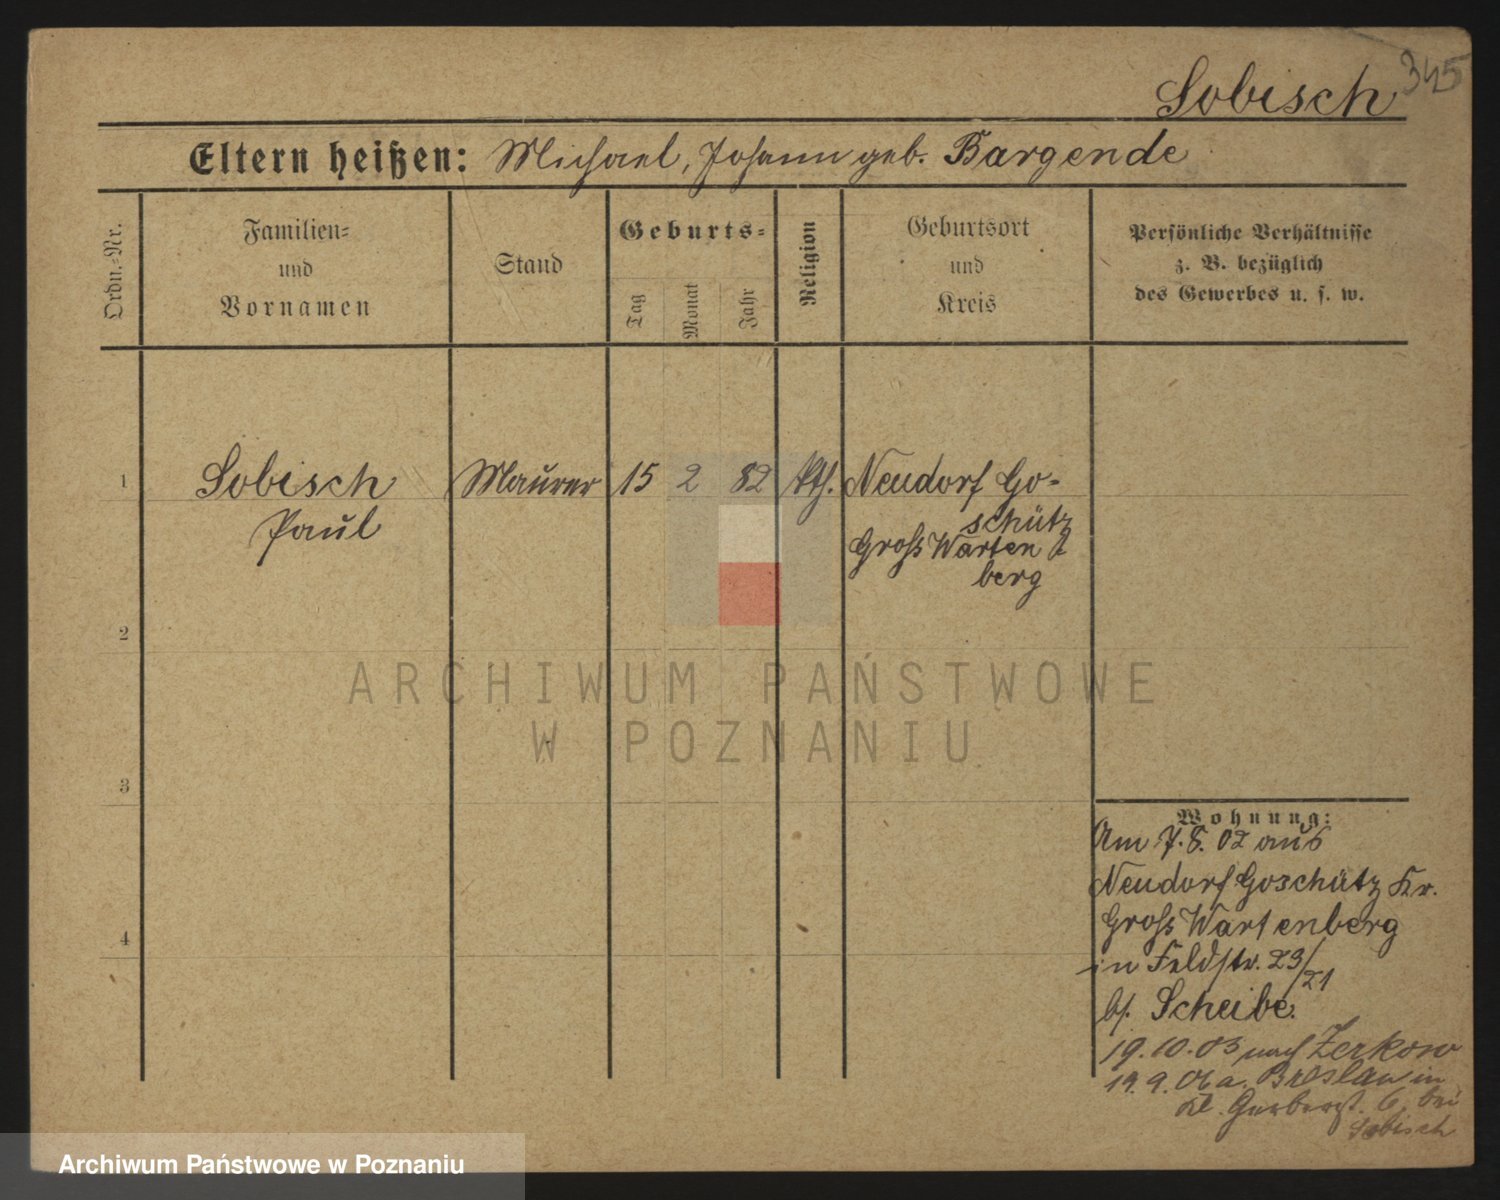 345
Sobisch
Eltern heißen: Michael, Johann geb. Bargende
Ordn.-Nr.
Familien-
und
Vornamen
Stand
Geburts-
Tag
Monat
Jahr
Religion
Geburtsort
und
Kreis
Persönliche Verhältnisse
z. B. bezüglich
des Gewerbes u. s. w.
1
Sobisch
Paul
Maurer
15
2
82
kth.
Neudorf Go-
schütz
Groß Warten
berg
2
3
4
ARCHIWUM PAŃSTWOWE
W POZNANIU
Wohnung:
Am 7.8.02 aus
Neudorf Goschütz Kr.
Groß Wartenberg
in Feldstr. 23/21
bs. Scheibe.
19.10.03 nach Zerkow
14.9.06 a. Breslau in
Kl. Gerberst. 6, bei
Sobisch
Archiwum Państwowe w Poznaniu